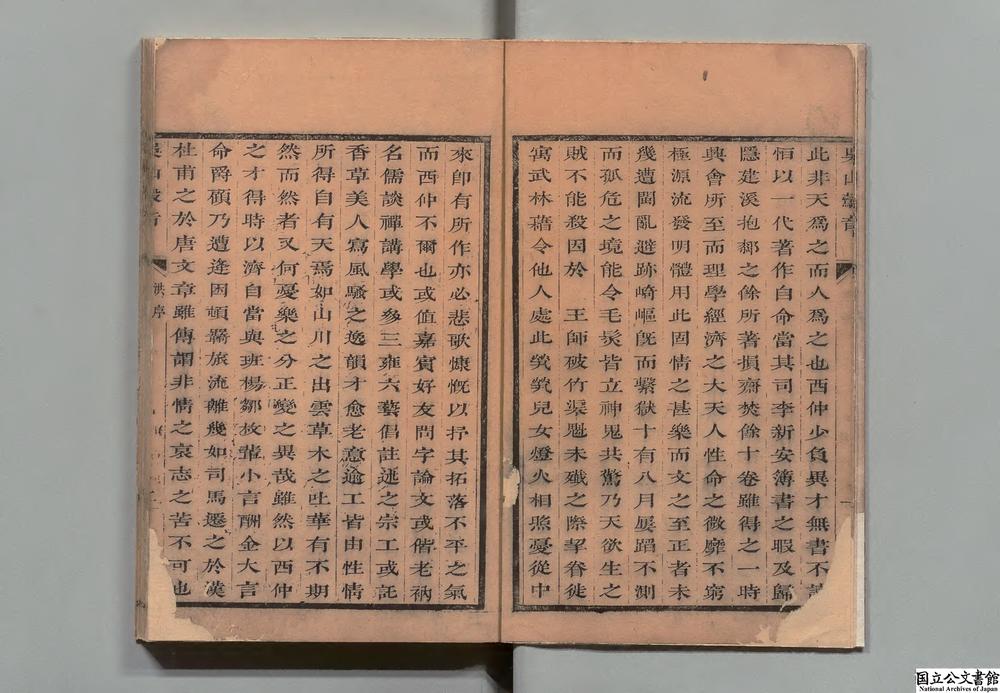 此非天爲之而人爲之也西仲少負異才無書不讀
恒以一代著作自命當其司李新安簿書之暇及歸
隱建溪抱之餘所著損齋焚餘十卷雖得之一時
興會所至而理學經濟之大天人性命之微靡不窮
極源流發明體用此固情之甚樂而文之至正者未
幾遭閩亂避跡崎嶇旣而繫獄十有八月屢蹈不測
而孤危之境能令毛髮皆立神鬼共驚乃天欲生之
賊不能殺因於　王師破竹渠魁未殲之際挈眷徙
寓武林藉令他人處此煢煢兒女燈火相照憂從中
來卽有所作亦必悲歌慷慨以抒其拓落不平之氣
而西仲不爾也或值嘉賓好友問字論文或偕老衲
名儒談禪講學或爲三雍六藝倡註述之宗工或託
香草美人寫風騷之逸韻才愈老意逾工皆由性情
所得自有天焉如山川之出雲草木之吐華有不期
然而然者又何憂樂之分正變之異哉雖然以西仲
之才得時以濟自當與班楊鄒枚輩小言酬金大言
命爵顧乃遭逢困頓羇旅流離幾如司馬遷之於漢
杜甫之於唐文章雖傳謂非情之哀志之苦不可也
洪序
国立公文書館
National Archives of Japan